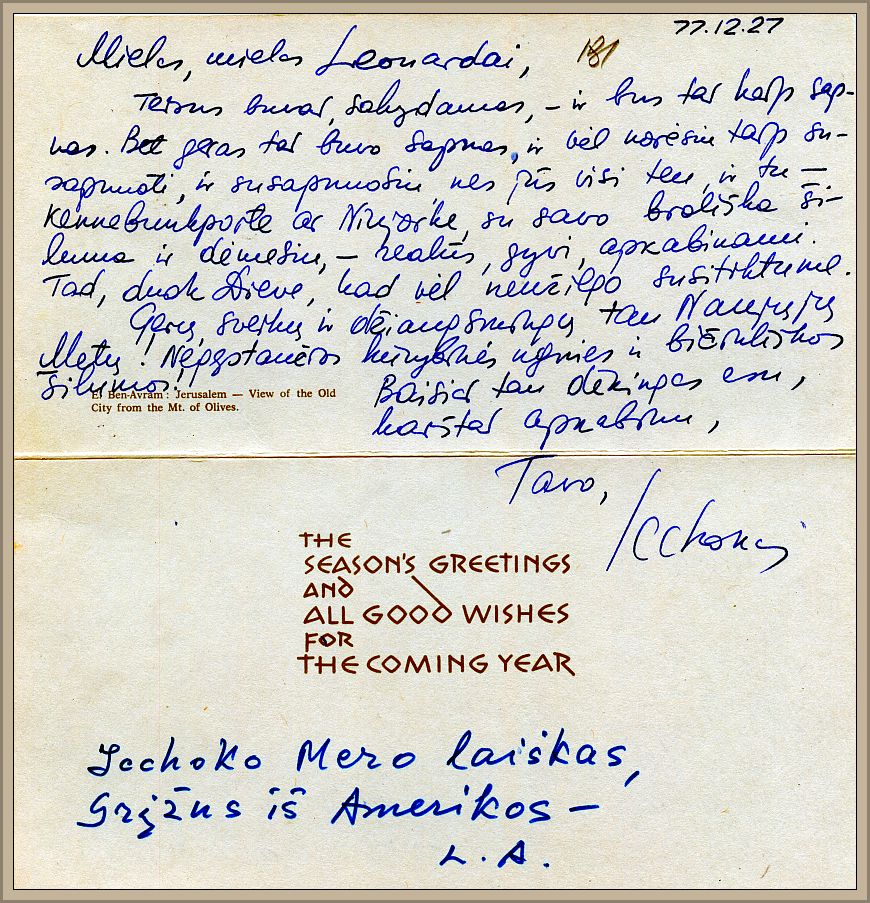 77.12.27
Mielas, mielas Leonardai,
181
buvai, sakydamas, – ir bus tai kaip sap-
nas. Bet geras tai buvo sapnas, ir vėl norėsiu taip su-
sapnuoti, ir susapnuosiu, nes jūs visi ten, ir tu –
Kennebunkporte ar Niujorke, su savo broliška ši-
luma ir dėmesiu, – realūs, gyvi, apkabinami.
Tad, duok Dieve, kad vėl neužilgo susitiktume.
Gerų, sveikų ir džiaugsmingų tau Naujųjų
Metų! Nepaliaujamos kūrybinės ugnies ir bičiuliškos
šilumos!
El Ben-Avram: Jerusalem — View of the Old
City from the Mt. of Olives.
Baisiai tau dėkingas esu,
karštai apkabinu,
Tavo,
Icchokas
THE
SEASON'S GREETINGS
AND
ALL GOOD WISHES
FOR
THE COMING YEAR
Icchoko Mero laiškas,
Grįžus iš Amerikos –
L. A.